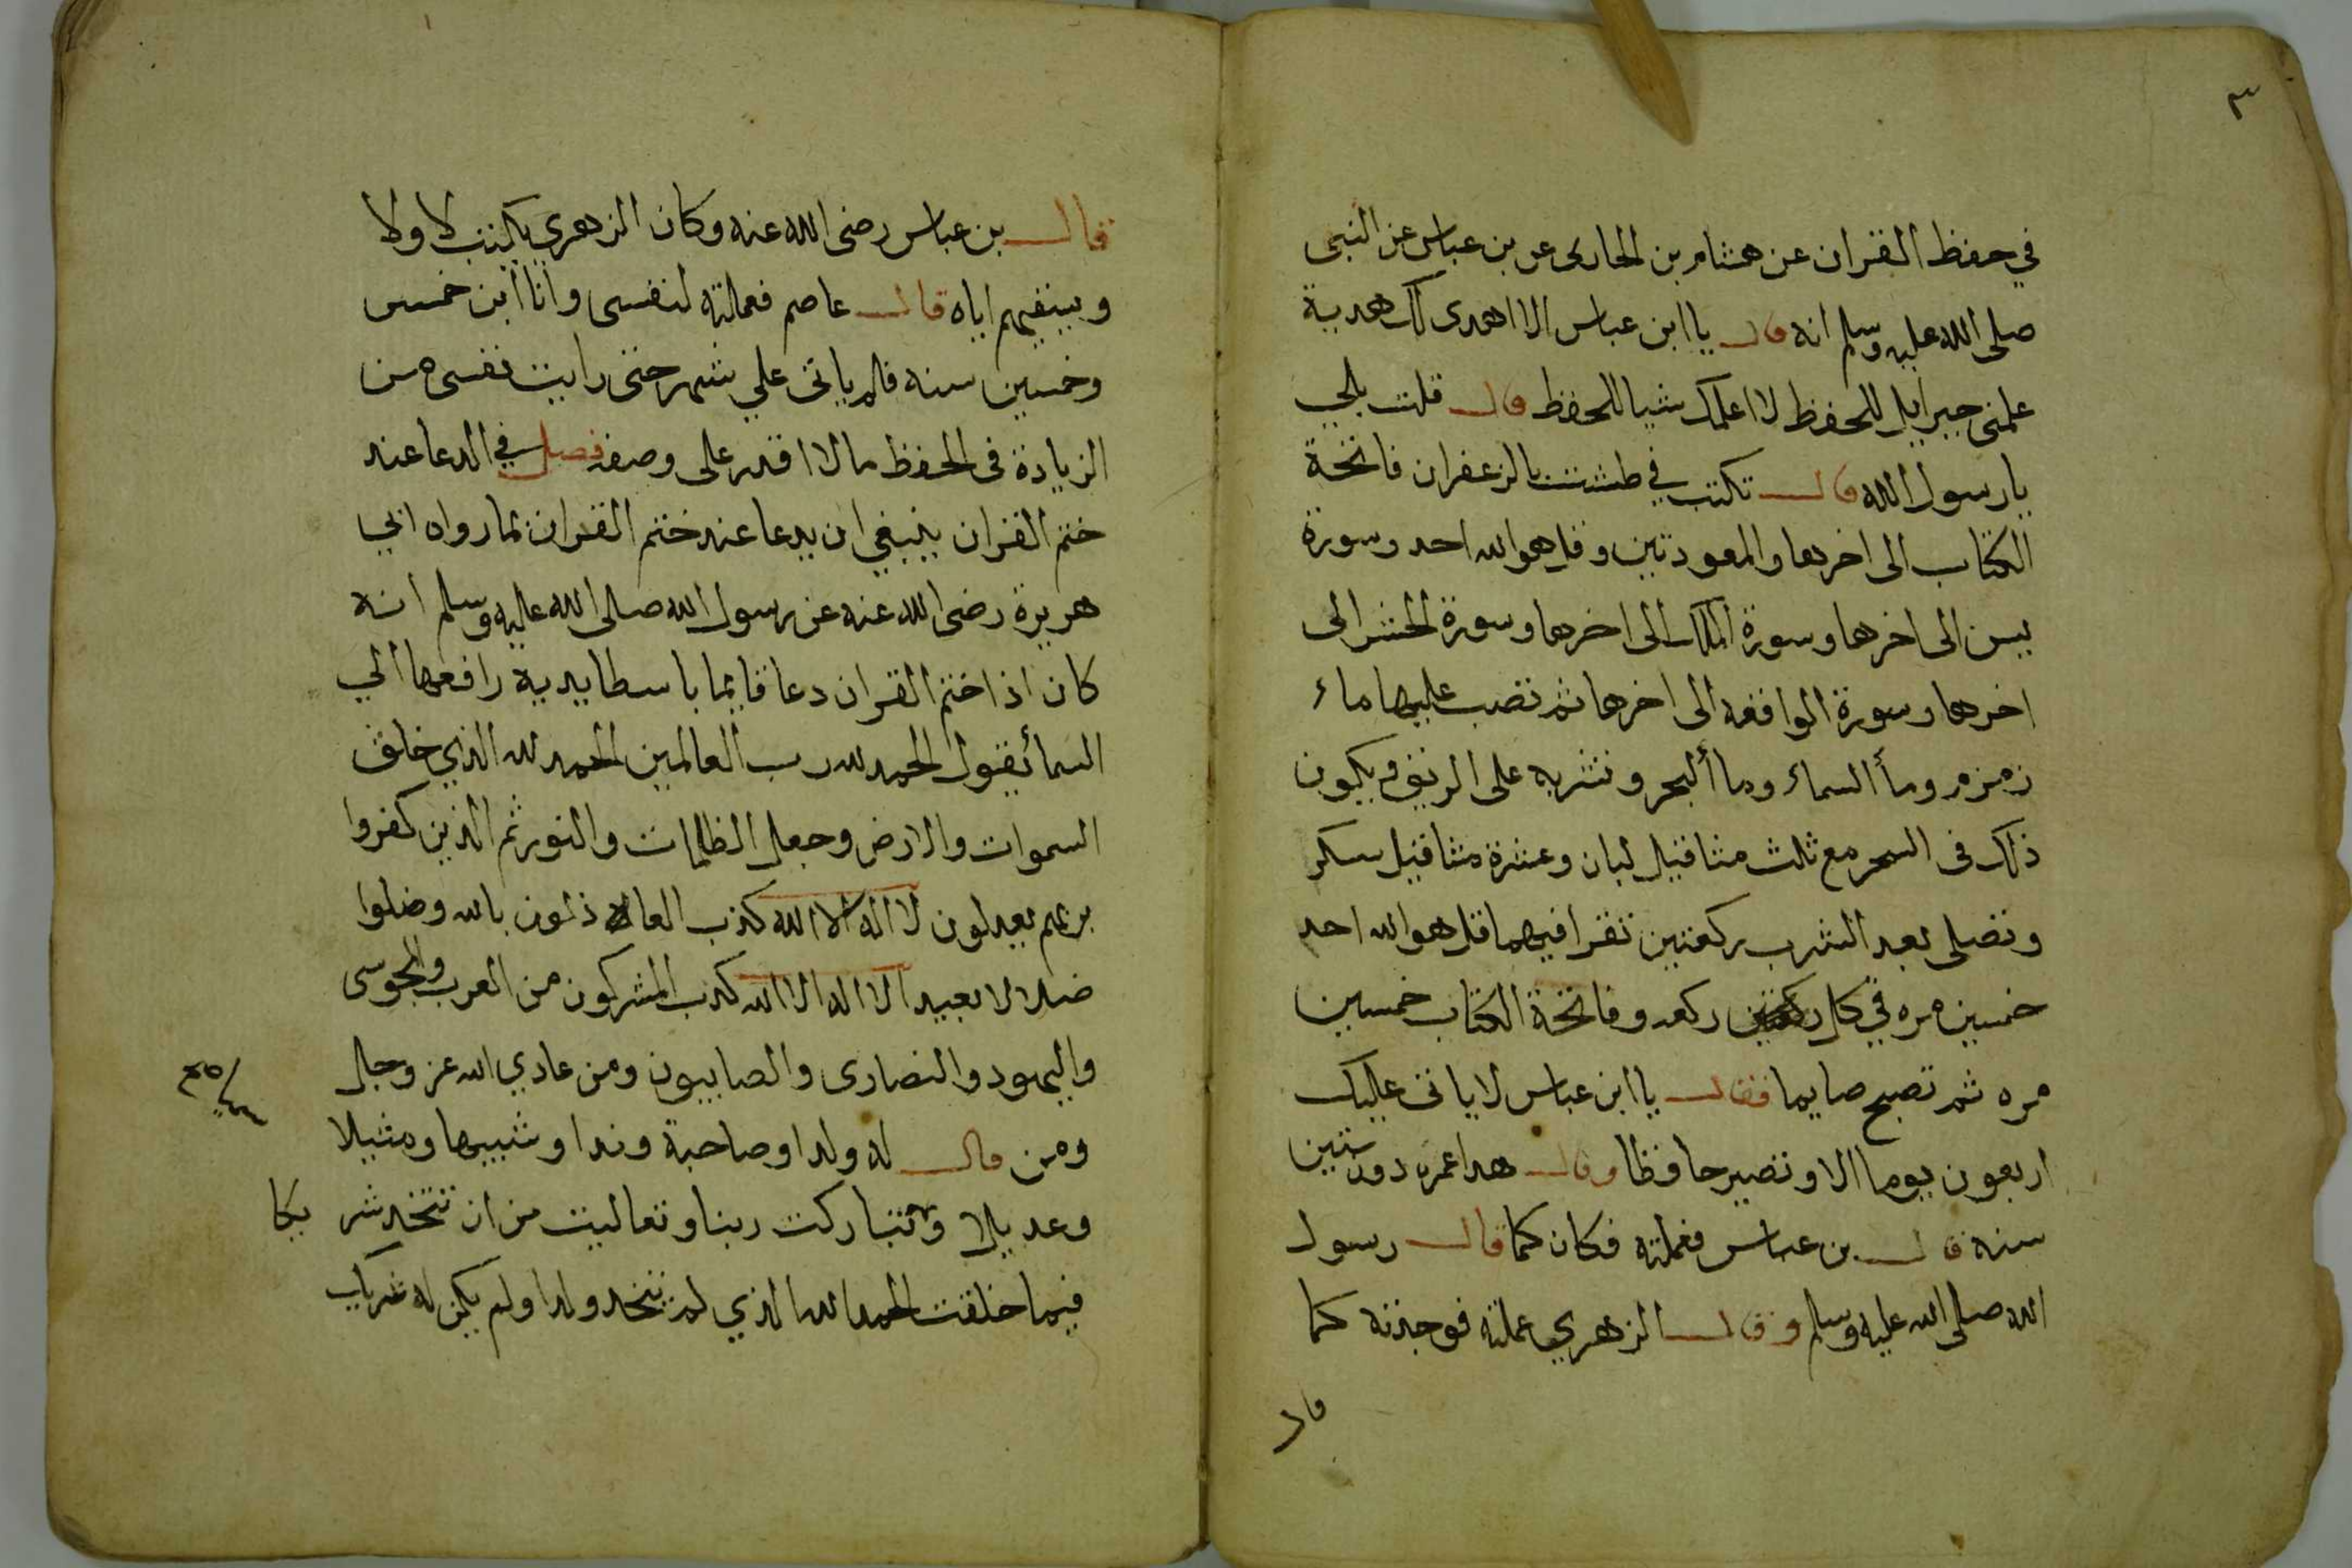 ٣
في حفظ القران عن هشام بن الحارى عن بن عباس عن النبى
صلى الله عليه وسلم انه قال يا ابن عباس الا اهدى لك هدية
علمنى جبرايل للحفظ لا اعلمك شيا للحفظ قال قلت بلي
يا رسول الله قال تكتب في طشت بالزعفران فاتحة
الكتاب الى اخرها والمعودتين وقل هو الله احد وسورة
يسن الى اخرها وسورة الملك الى اخرها وسورة الحشر الى
اخرها وسورة الواقعه الى اخرها ثم تصب عليها ماء
زمزم وماأ السماء وما ألبحر وتشربه على الريق ويكون
ذلك فى السحر مع ثلث مثاقيل لبان وعشرة مثاقيل سكر
وتصلى بعد الشرب ركعتين تقرا فيهما قل هو الله احد
خمسين مره في كل ركعه وفاتحة الكتاب خمسين
مره ثم تصبح صايما فقال يا ابن عباس لا ياتى عليك
اربعون يوما الا وتصير حافظا وقال هدا عمره دون ستين
سنه قال بن عباس فعملته فكان كما قال رسول
الله صلى الله عليه وسلم وقال الزهري عملته فوجدته كما
قال
قال بن عباس رضى الله عنه وكان الزهري يكتب لاولا
وبينقيهم اياه قال عاصم فعملته لنفسى وانا ابن خمس
وخمسين سنه فلم ياتى علي شهر حتى رايت نفسى من
الزيادة فى الحفظ ما لا اقدر على وصفه فصل في الدعا عند
ختم القران ينبغي ان يدعا عند ختم القران بما رواه ابي
هريرة رضى الله عنه عن رسول الله صلى الله عليه وسلم انه
كان اذا ختم القران دعا قايما باسطا يديه رافعها الي
السمائ يقول الحمد لله رب العالمين الحمد لله الذي خلق
السموات والارض وجعل الظلمات والنور ثم الذين كفروا
بربهم يعدلون لا اله الا الله كذب العا ذلون بالله وضلوا
ضلالا بعيدا لا اله الا الله كذب المشركون من العرب والمجوسى
واليهود والنصارى والصابيون ومن عادي الله عز وجل
ومن قال له ولدا وصاحبة وندا وشبيها ومثيلا
وعديلا وتباركت ربنا وتعاليت من ان تتخد شر يكا
فيما خلقت الحمد لله الذي لم يتخد ولدا ولم يكن له شريك